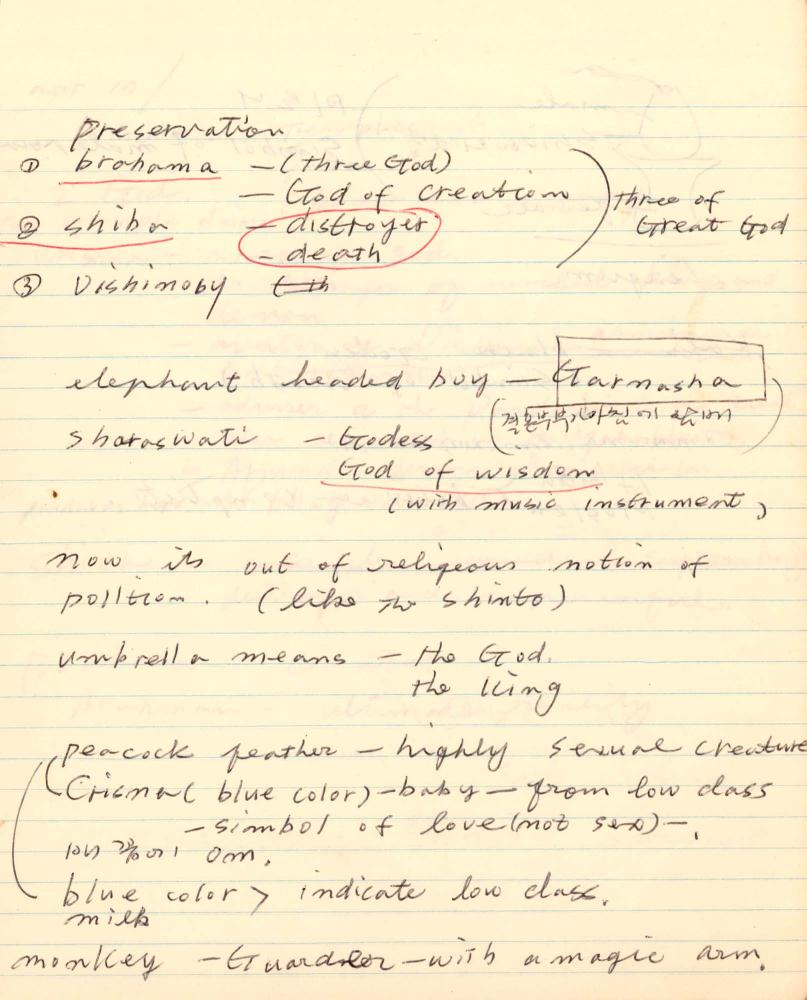 preservation
① brahama — (three God)
— God of creation
three of
Great God
② shiba — distroyer
- death
③ Vishinoby
elephant headed boy — Garnasha
sharaswati - Godess
God of wisdom
(with music instrument,
now its out of religeous notion of
polltion. (like the shinto)
umbrella means — the God.
the King
peacock feather — highly sexual creature
Crisna( blue color) -baby — from low class
— simbol of love (not sex) —.
om.
blue color > indicate low class.
milk
monkey — Guarder — with a magic arm.